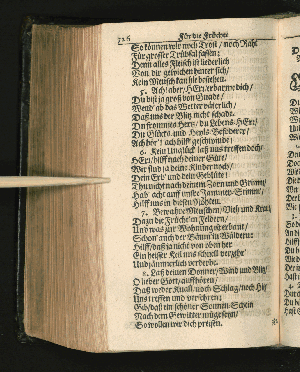 726 Für die Früchte
So können wir weder Trost / noch Raht
Für grosser Trübsal fassen;
Denn alles Fleisch ist liederlich
Von dir gewichen
Kein Mensch kan hie bestehen.
5. Ach! aber / HErr / erbarme dich /
Du bist ja groß von Gnade /
Wend' ab das Wetter väterlich /
Daß uns der Blitz nicht schade.
Du frommes Hertz / du Lebens-HErr /
Du Glücks- und Heyls-Besitzer /
Ach hör'! ach hilff geschwinde!
6. Kein Unglück laß uns treffen doch
HErr / hilff nach deiner Güte /
Wir sind ja deine Kinder noch /
Dein Erb' und dein Geblüte;
Thu nicht nach deinem Zorn und Grimm /
Hab' acht auff unsre Jammers-Stimm /
Hilff uns in diesen Nöhten.
7. Bewahre Menschen / Vieh und Kraut
Dazu die Frücht' im Felde /
Und was zur Wohnung ist erbaut /
Schon' auch der Bäum' im Walde:
Hilff / daß ja nicht von oben her
Ein heisser Keil uns schnell verzehr'
Und jämmerlich verderbe.
8. Laß deinen Donner / Wind und Blitz /
O lieber Gott / auffhören /
Daß weder Knall / noch Schlag / noch Hitz
Uns treffen und versehren;
Gib / daß ein schöner Sonnen-Schein
Nach dem Gewitter
So wollen wir dich preisen.